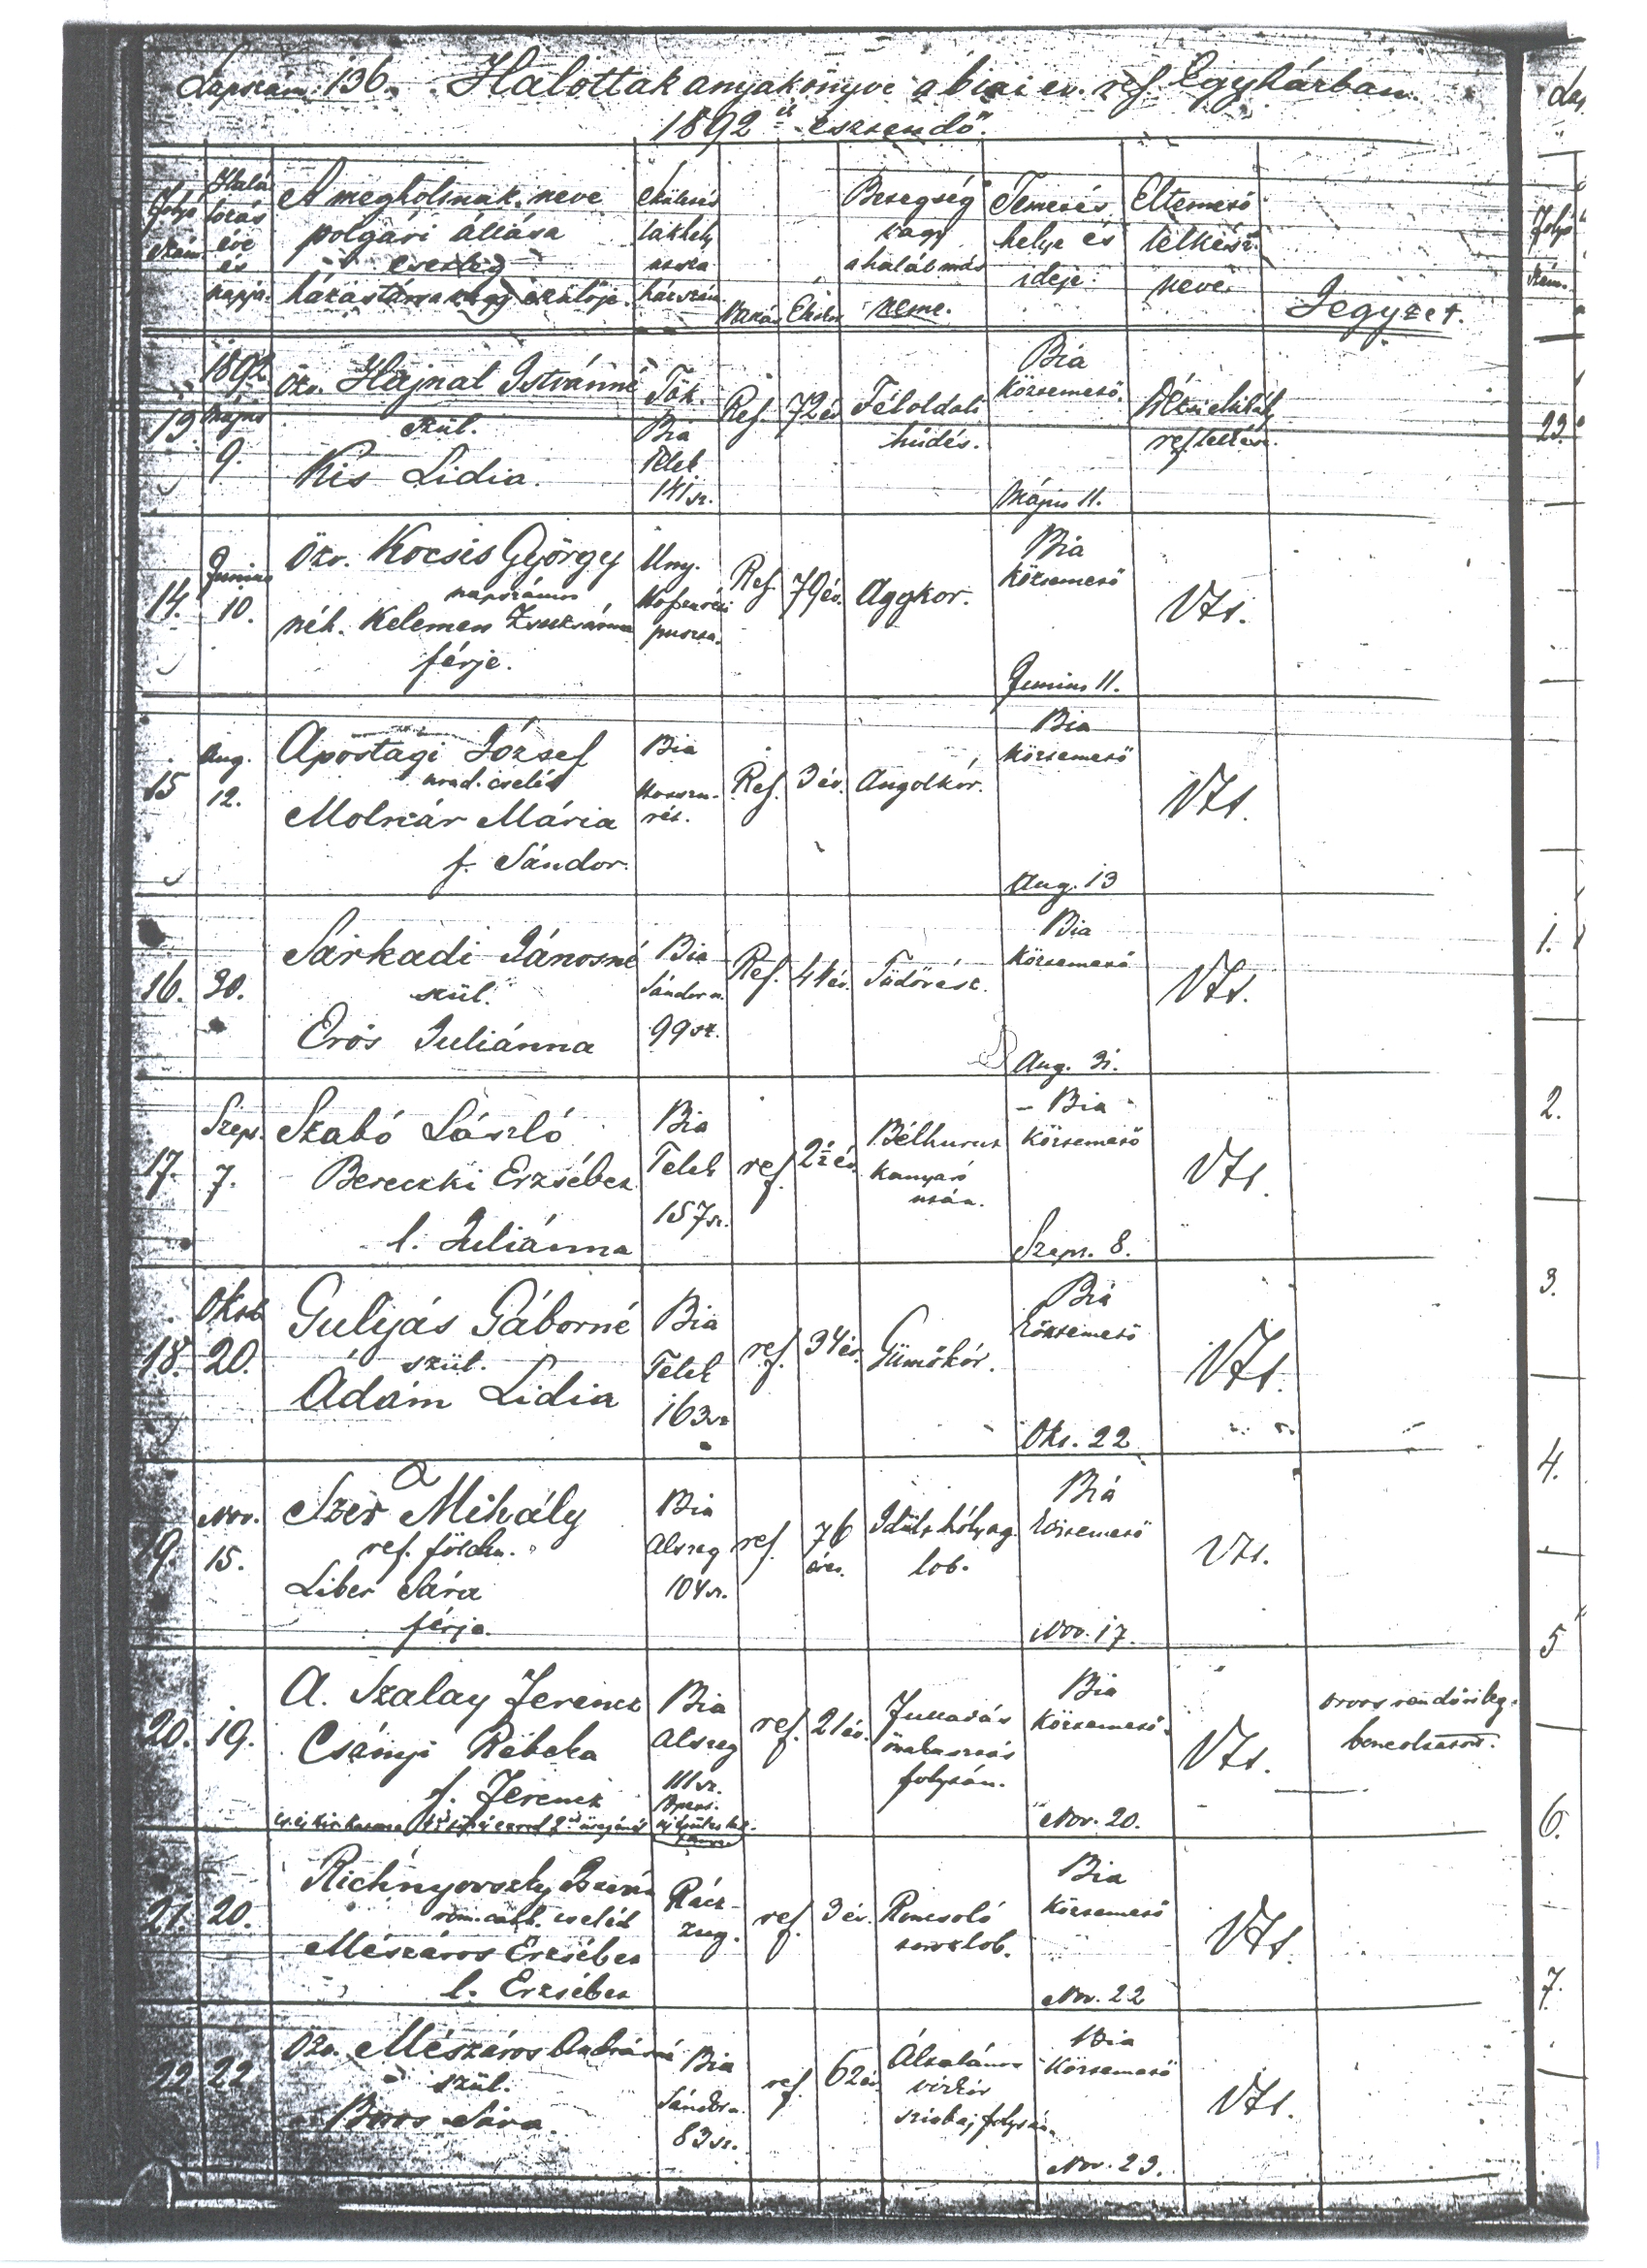 Lapszám: 136. Halottak anyakönyve a biai ev. ref. Egyházban
1892 ik esztendő.
Folyó szám
Halálozás éve és napja.
A megholtnak neve
polgári állása
esetleg
házastársa vagy szülője.
Születés
lakhely
utcza
házszám
Vallás
Életkor
Betegség
vagy
a halál más
neme.
Temetés
helye és
ideje.
Eltemető
lelkész
neve.
Jegyzet.
13
1892
május
9.
Özv. Hajnal Istvánné
szül.
Kis Lidia.
Tök.
Bia
Telek
141 sz.
Ref.
72 év
Féloldali
hüdés.
Bia
köztemető.
Május 11.
Mihály
ref. lelkész.
14.
Junius
10.
Özv. Kocsis György
napszámos
néh. Kelemen Zsuzsánna
férje.
Uny.
puszta.
Ref
79 év.
Aggkor.
Bia
köztemető
Junius 11.
15
Aug.
12.
Apostagi József
urad. cseléd
Molnár Mária
f. Sándor.
Bia
Hosszu-
rét.
Ref.
3 év.
Angolkór.
Bia
köztemető
Aug. 13
16.
30.
Sárkadi Jánosné
szül.
Erős Juliánna
Bia
Sándor u.
99 sz.
Ref.
44 év.
Tüdővész.
Bia
köztemető
Aug. 31.
17.
Szept.
7.
Szabó László
Bereczki Erzsébet
l. Juliánna
Bia
Telek
157 sz.
ref.
2 1/2 év
Bélhurut
kanyaró
után.
Bia
köztemető
Szept. 8.
18.
Oktob
20.
Gulyás Gáborné
szül.
Ádám Lidia
Bia
Telek
163 sz
ref.
34 év.
Gümőkór.
Bia
köztemető
Okt. 22
19.
Nov.
15.
a
Szer Mihály
ref. földm.
Liber Sára
férje.
Bia
Alszeg
104 sz.
ref.
76
éves.
Idült hólyag
lob.
Bia
köztemető
Nov. 17.
20.
19.
A. Szalay Ferencz
Csányi Rebeka
f. Ferencz
Bia
Alszeg
111 sz.
ref.
21 év.
Fulladás
önakasztás
folytán.
Bia
köztemető
Nov. 20.
orvos rendőrileg
bonczoltatott.
21.
20.
Richnyovszky
rom. cath. cseléd
Mészáros Erzsébet
l. Erzsébet
Rácz-
zug.
ref.
3 év.
Roncsoló
toroklob.
Bia
köztemető
Nov. 22
22
22
Özv. Mészáros Andrásné
szül.
Boros Sára.
Bia
Sándor u.
83 sz.
ref.
62 év
Általános
vízkór
szívbaj folytán.
Bia
köztemető
Nov. 23.
Lap
Folyó
szám.
23.
1.
2.
3.
4.
5
6.
7.